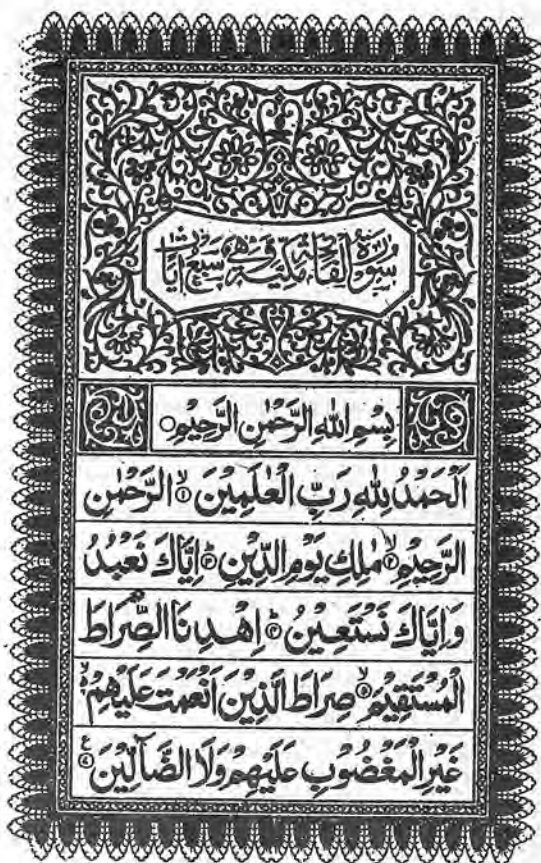 سُوْرَةُ الْفَاتِحَةِ مَكِّيَّةٌ وَّهِيَ سَبْعُ اٰيَاتٍ
بِسْمِ اللهِ الرَّحْمٰنِ الرَّحِيْمِ ○
اَلْحَمْدُ لِلّٰهِ رَبِّ الْعٰلَمِيْنَ ۙ﴿۱﴾ الرَّحْمٰنِ
الرَّحِيْمِ ۙ﴿۲﴾ مٰلِكِ يَوْمِ الدِّيْنِ ؕ﴿۳﴾ اِيَّاكَ نَعْبُدُ
وَ اِيَّاكَ نَسْتَعِيْنُ ؕ﴿۴﴾ اِهْدِنَا الصِّرَاطَ
الْمُسْتَقِيْمَ ۙ﴿۵﴾ صِرَاطَ الَّذِيْنَ اَنْعَمْتَ عَلَيْهِمْ ۙ﴿۶﴾
غَيْرِ الْمَغْضُوْبِ عَلَيْهِمْ وَلَا الضَّآلِّيْنَ ﴿۷﴾ ع